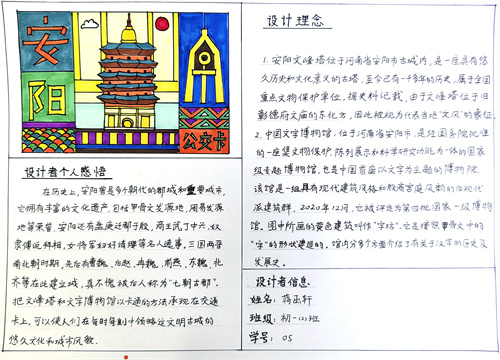 安
阳
公交卡
设计者个人感悟
在历史上，安阳曾是多个朝代的都城和重要城市，
它拥有丰富的文化遗产，包括甲骨文发源地、周易发源
地等荣誉，安阳还有盘庚迁都于殷，商王武丁中兴，奴
隶傅说拜相，女将军妇好请缨等名人逸事，三国两晋
南北朝时期，先后有曹魏、后赵、冉魏、前燕、东魏、北
齐等在此建立城，真不愧被后人称为"七朝古都"。
把文峰塔和文字博物馆以卡通的方法承现在交通
卡上，可以使人们在每时每刻中领略这文明古城的
悠久文化和城市风貌。
设计理念
1. 安阳文峰塔位于河南省安阳市古城内，是一座具有悠
久历史和文化意义的古塔，至今已有一千多年的历史，属于全国
重点文物保护单位，据史料记载，由于文峰塔位于旧
彰德府文庙的东北方，因此被视为代表当地"文风"的象征。
2. 中国文字博物馆，位于河南省安阳市，是经国务院批准
的一座集文物保护、陈列展示和科学研究功能为一体的国家
级专题博物馆，也是中国首座以文字为主题的博物馆，
该馆是一组具有现代建筑风格和殷商宫廷风韵的后现代
派建筑群，2020年12月，它被评定为第四批国家一级博物
馆。图中所画的黄色建筑叫作"字坊"，它是按照甲骨文中的
"字"的形状建造的。馆内分多个方面介绍了有关于汉字的历史及
发展史。
设计者信息
姓名：蒋函轩
班级：初一(1)班
学号：05